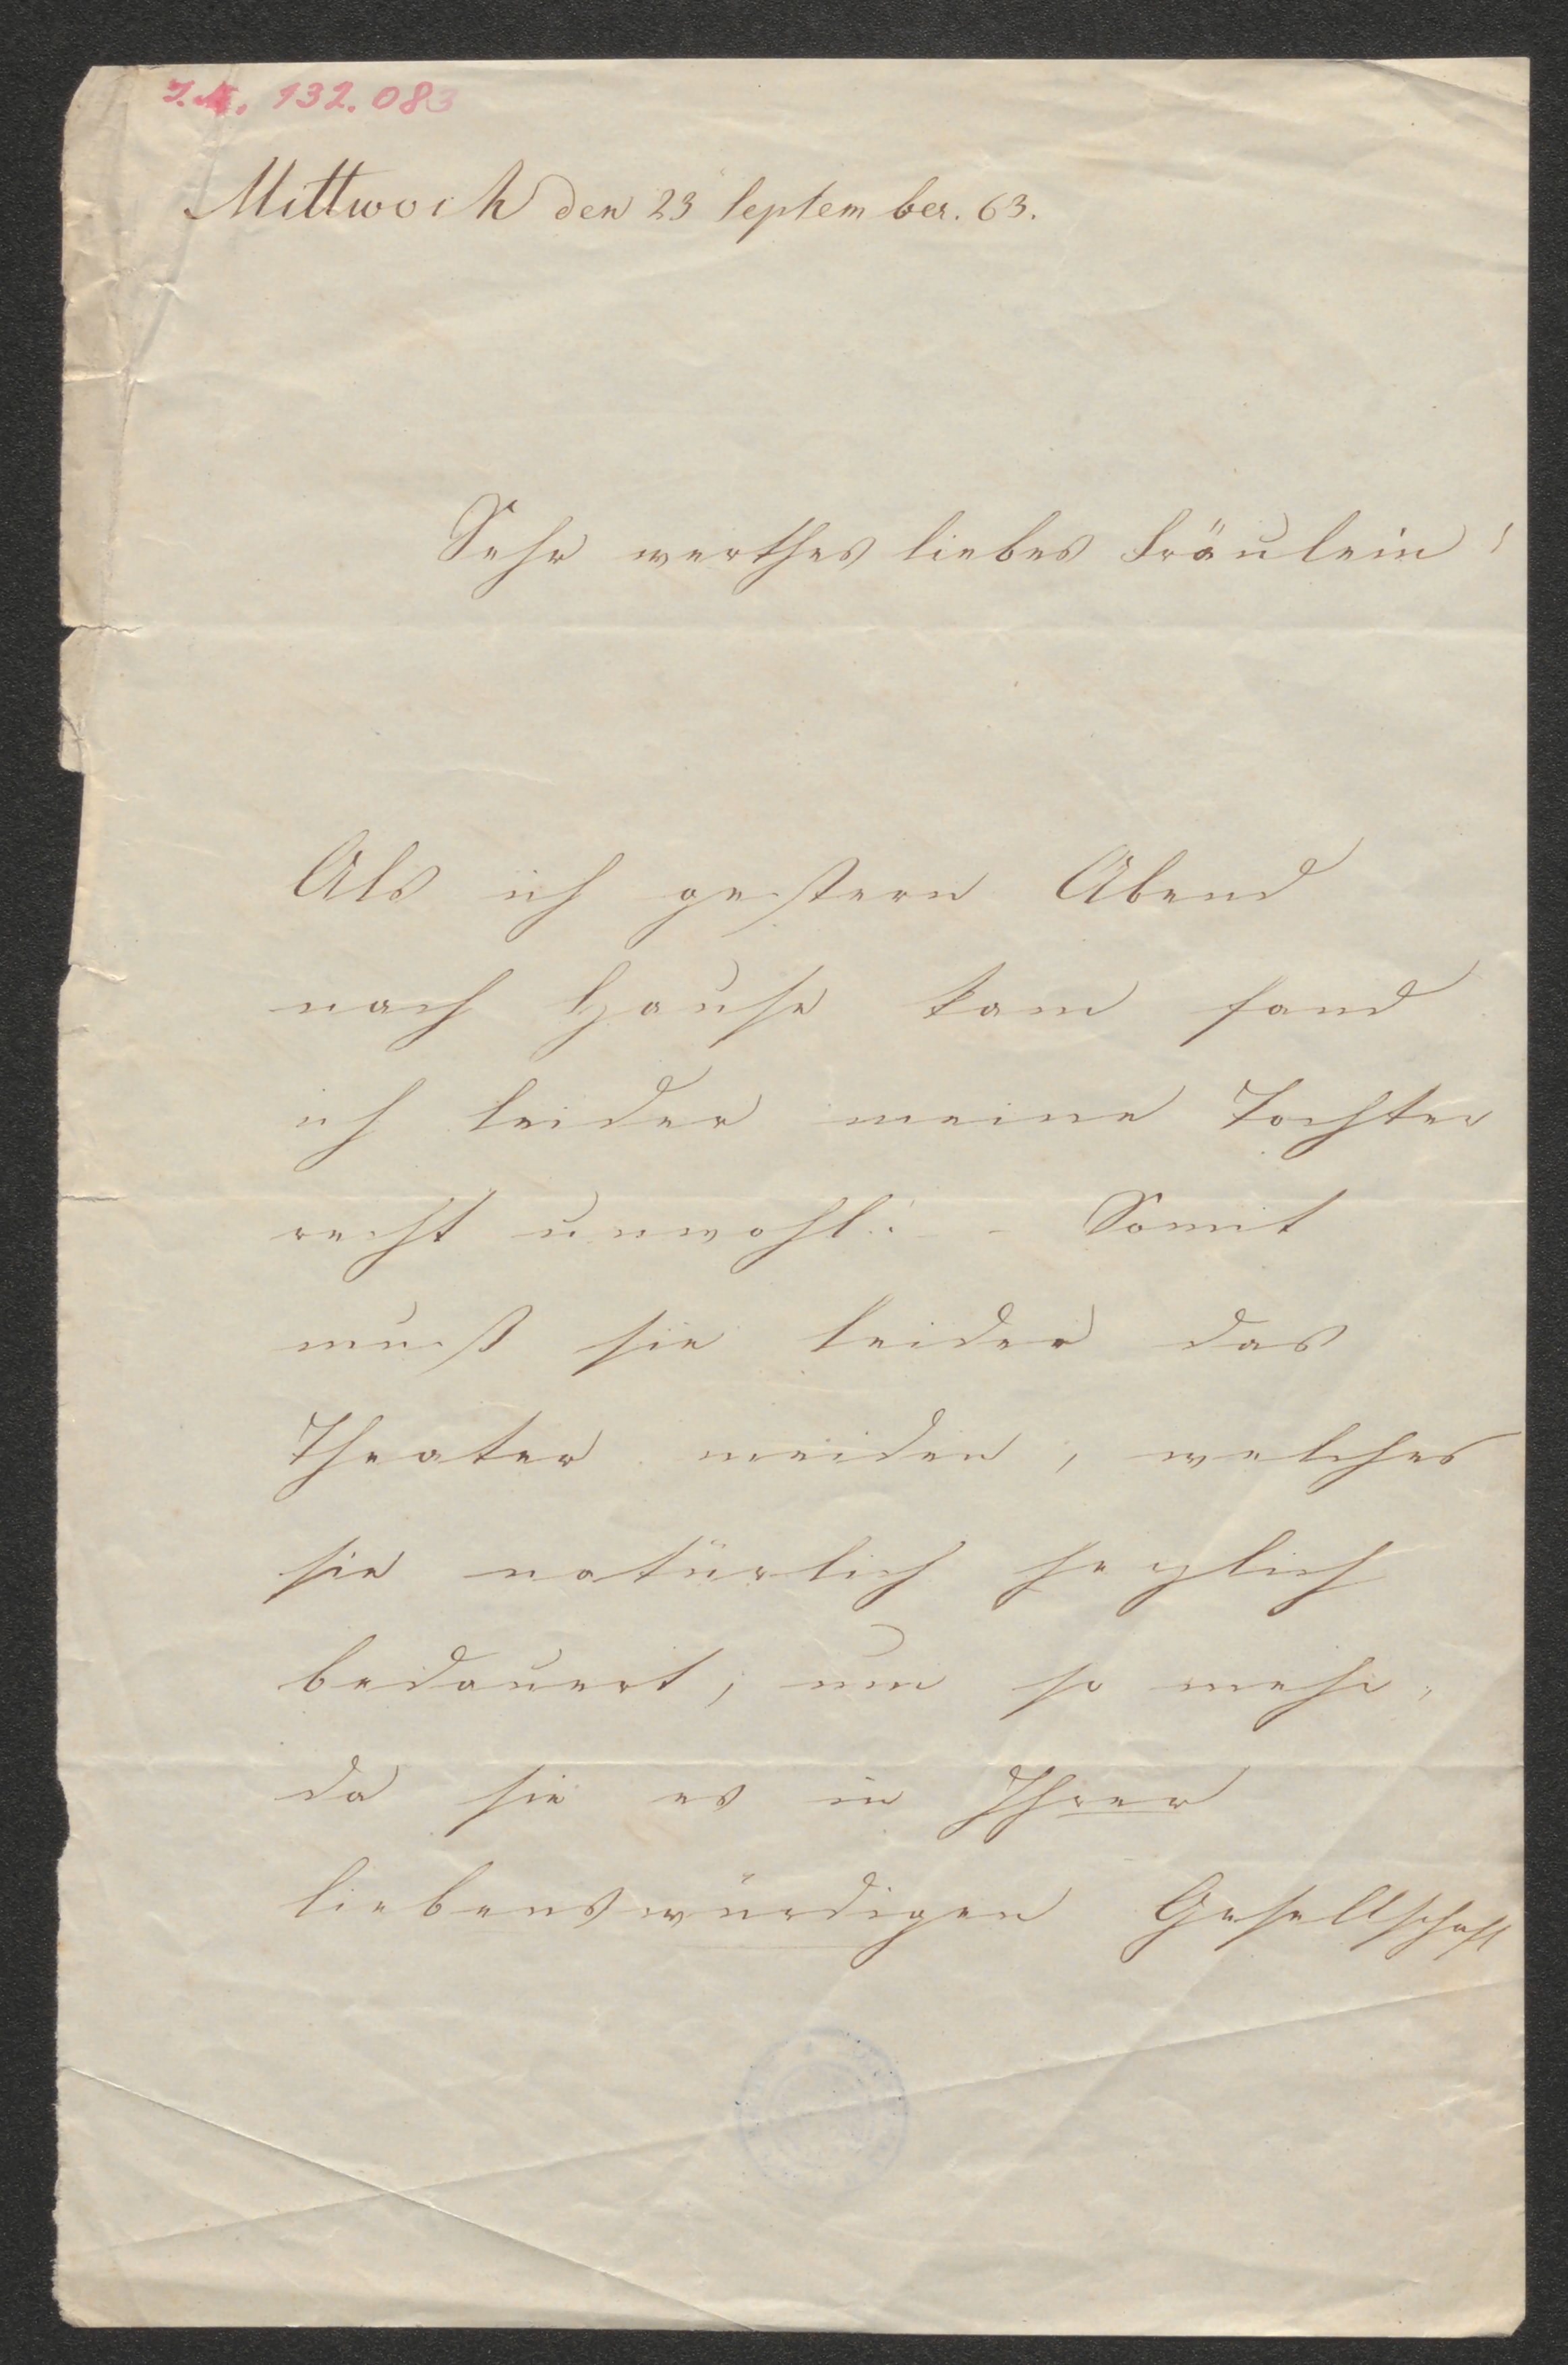 J.N. 132.083
Mittwoch den 23 September. 63.
Sehr werthes liebes Fräulein!
Als ich gestern Abend
nach Hause kam fand
ich leider meine Tochter
recht unwohl! - Somit
muß sie leider das
Theater meiden, welches
sie natürlich herzlich
bedauert, um so mehr,
da sie es in Ihrer
liebenswürdigen Gesellschaft